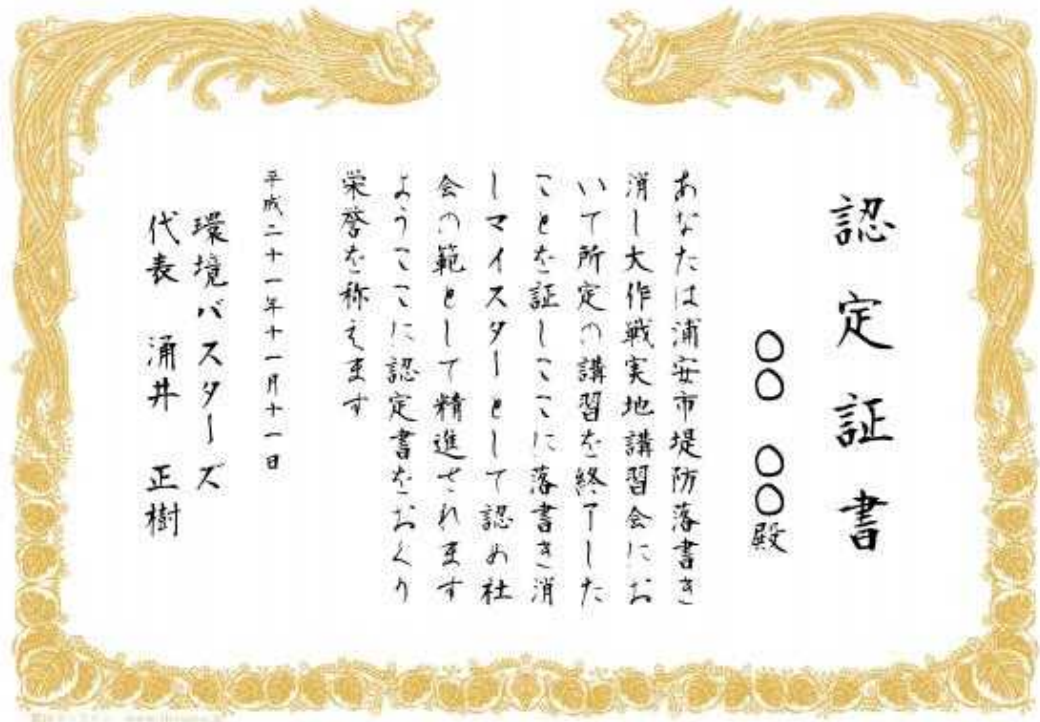 認定証書
〇〇 〇〇殿
あなたは浦安市堤防落書き
消し大作戦実地講習会にお
いて所定の講習を終了した
ことを証しここに落書き消
しマイスターとして認め社
会の範として精進されます
ようここに認定書をおくり
栄誉を称えます
平成二十一年十一月十一日
環境バスターズ
代表 涌井 正樹